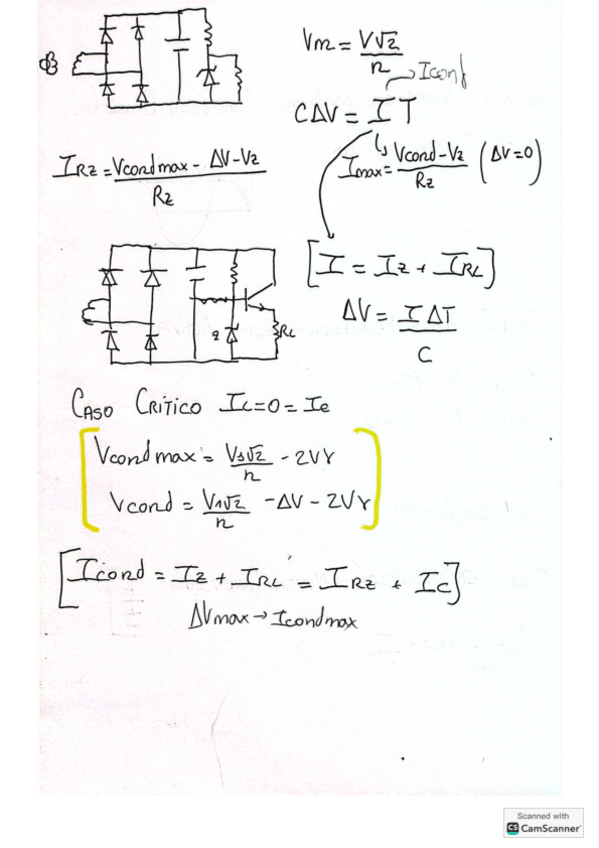 Vm = V√2 / n
→ Icond
CΔV = I T
IRZ = Vcondmax - ΔV - VZ / RZ
Imax = Vcond - VZ / RZ (ΔV=0)
[I = IZ + IRL]
ΔV = I ΔT / C
RL
CASO CRÍTICO IL=0=Ie
Vcondmax = V1√2 / n - 2Vγ
Vcond = V1√2 / n - ΔV - 2Vγ
[Icond = IZ + IRL = IRZ + IC]
ΔVmax → Icondmax
Scanned with
CS CamScanner